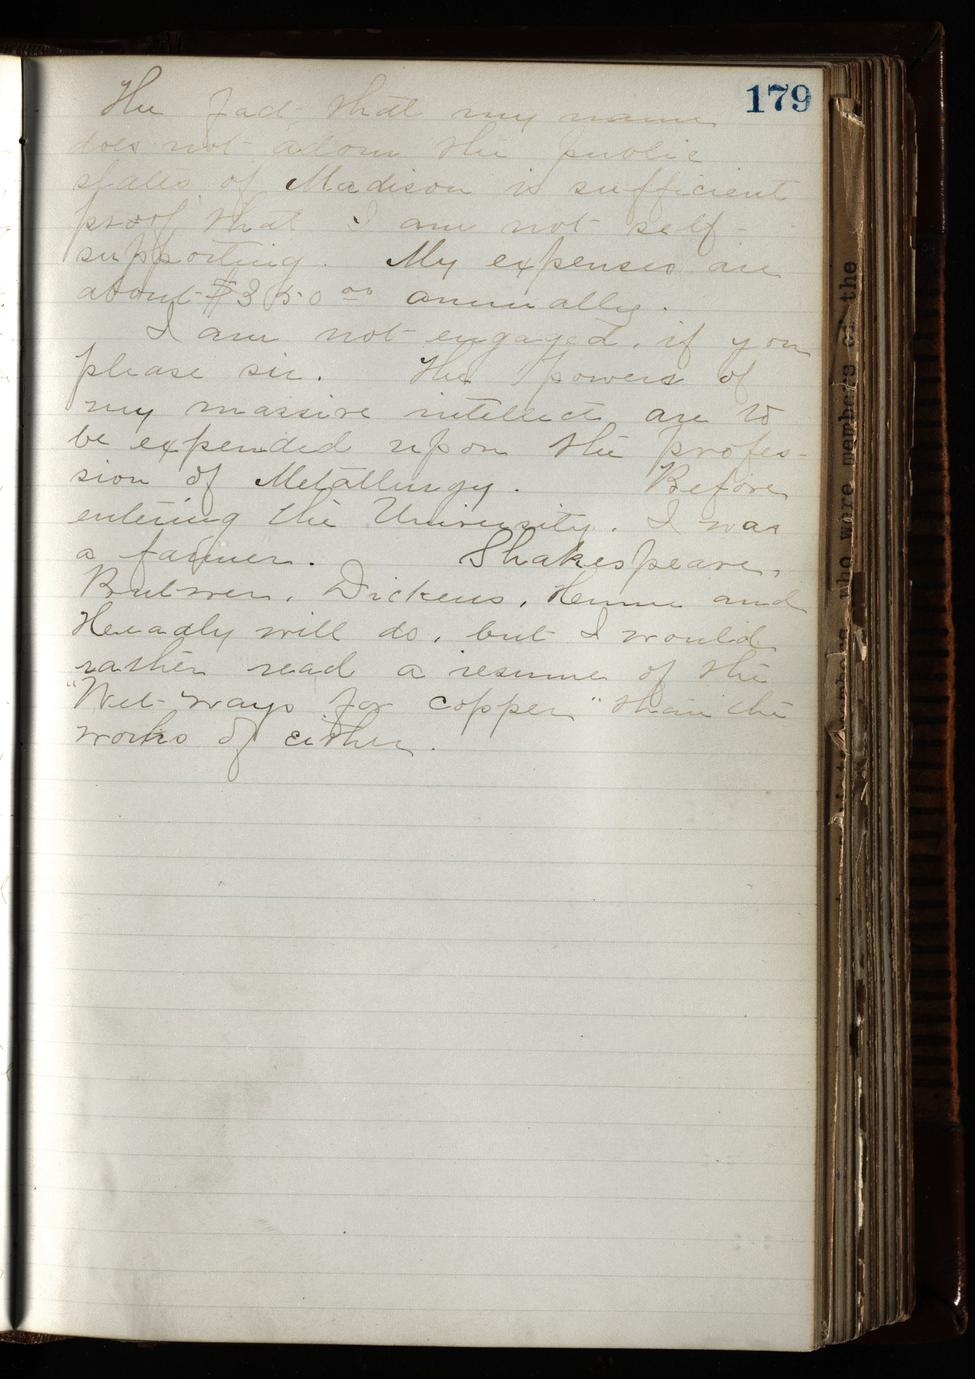 179
The fact that my name
does not adorn the public
slates of Madison is sufficient
proof that I am not self-
supporting. My expenses are
about $350 00 annually.
I am not engaged, if you
please sir. The powers of
my massive intellect are to
be expended upon the profes-
sion of Metallurgy. Before
entering the University, I was
a farmer. Shakespeare,
Bulwer, Dickens, Hume and
Headly will do, but I would
rather read a resume of the
"Wet-ways for copper" than the
works of either.
who were members of the